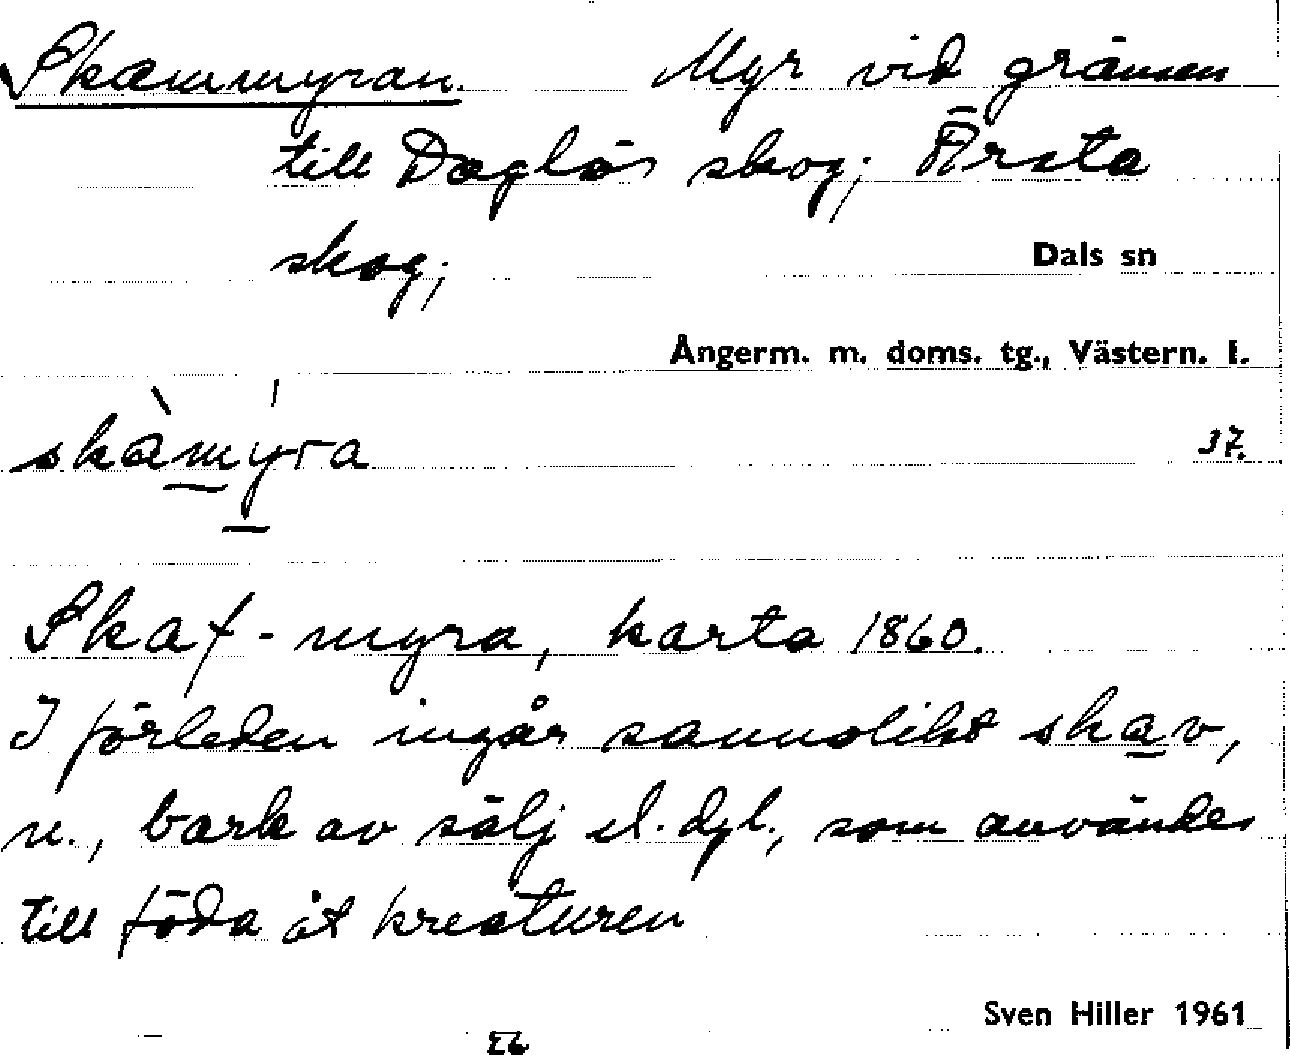 Skammyran. Myr vid gränsen
till Daglös skog; Ärsta
skog;
Dals sn
Ångerm. m. doms. tg., Västern. l.
skàmýra 37.
Skaf-myra, karta 1860.
I förleden ingår sannolikt skav,
n., bark av sälj el. dyl., som användes
till föda åt kreaturen
Sven Hiller 1961